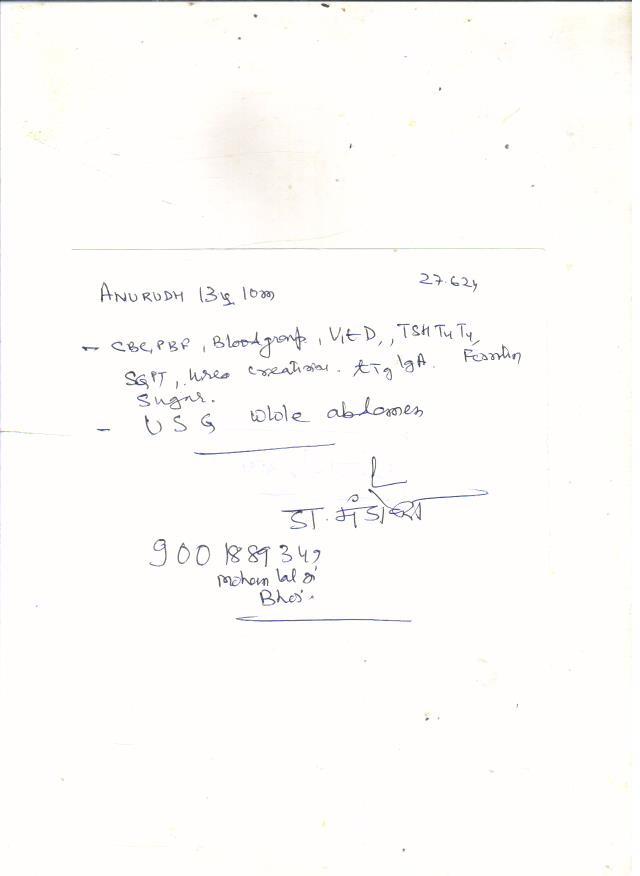 27.6.24
ANURUDH 13y 10m
- CBC, PBF, Blood group, Vit D, TSH T4 T4,
SGPT, Urea creatinine. tTg IgA. Ferritin
Sugar.
- USG whole abdomen
डा.
900 1889347
Mohan lal